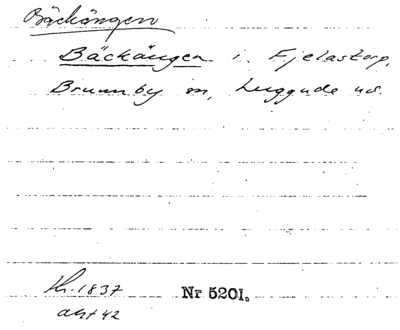 Bäckängen
Bäckängen i Fjelastorp,
Brunnby sn, Luggude hd.
Nr 5201.
1837
akt 42